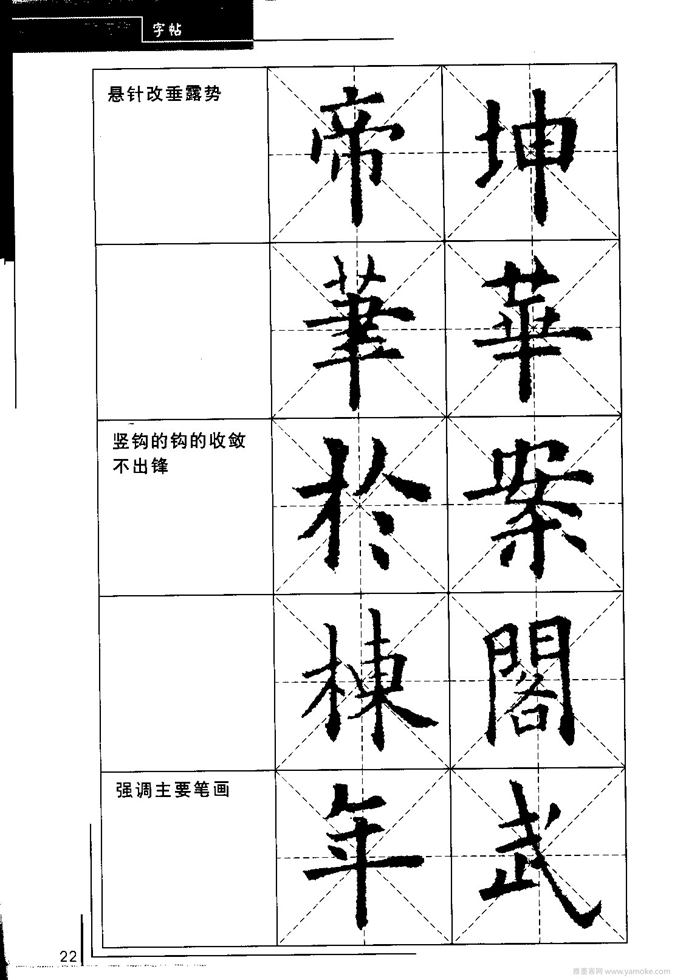 字帖
悬针改垂露势
帝 坤
筆 華
竖钩的钩的收敛
不出锋
於 案
棟 閣
强调主要笔画
年 武
22
雅墨客网 www.yamoke.com